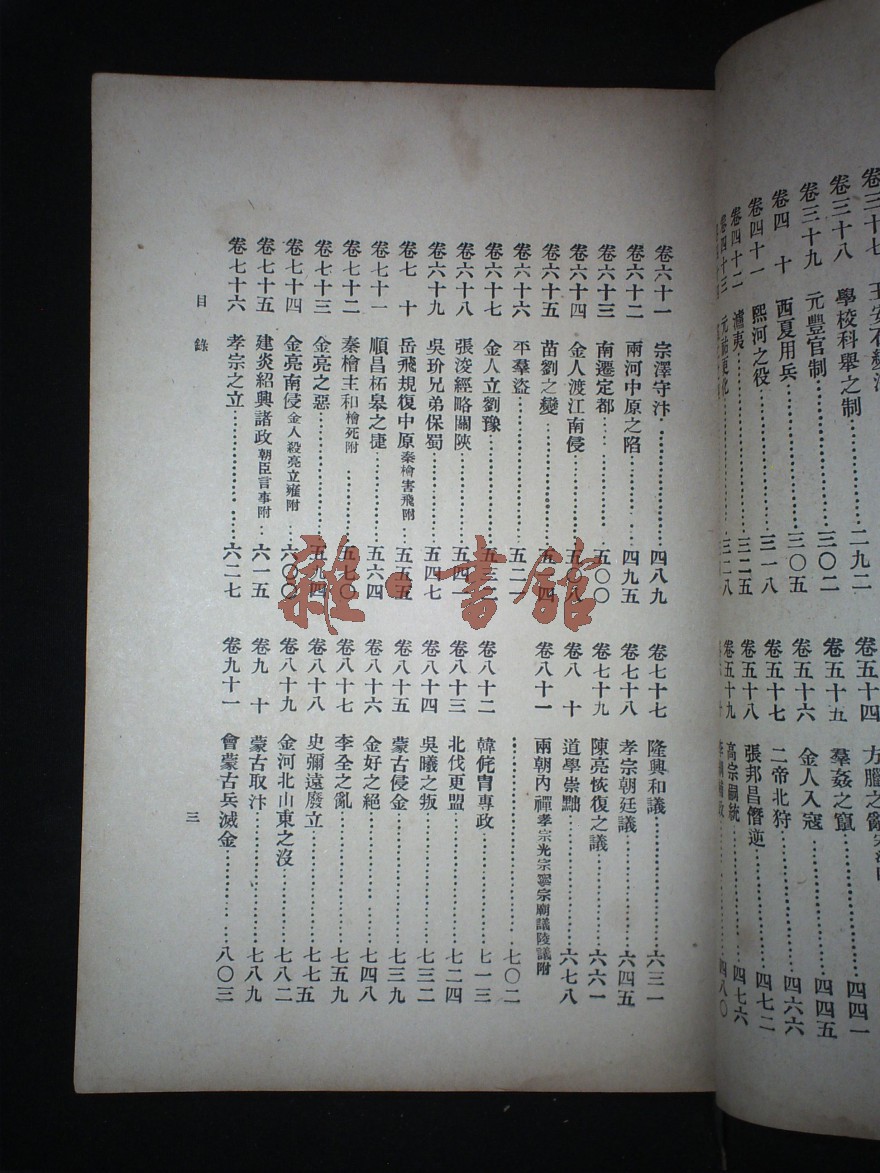 卷三十七 王安石變法
卷三十八 學校科舉之制 二九二
卷三十九 元豐官制 三〇二
卷四十 西夏用兵 三〇五
卷四十一 熙河之役 三一八
卷四十二 瀘夷 三二五
卷四十三 元祐更化 三二八
卷五十四 方臘之亂
卷五十五 羣姦之竄 四四一
卷五十六 金人入寇 四四五
卷五十七 二帝北狩 四六六
卷五十八 張邦昌僭逆 四七二
卷五十九 高宗嗣統 四七六
李綱輔政 四八〇
卷六十一 宗澤守汴 四八九
卷六十二 兩河中原之陷 四九五
卷六十三 南遷定都 五〇〇
卷六十四 金人渡江南侵 五〇八
卷六十五 苗劉之變 五一四
卷六十六 平羣盜 五二一
卷六十七 金人立劉豫 五三二
卷六十八 張浚經略關陝 五四一
卷六十九 吳玠兄弟保蜀 五四七
卷七十 岳飛規復中原秦檜害飛附 五五五
卷七十一 順昌柘皋之捷 五六四
卷七十二 秦檜主和檜死附 五七〇
卷七十三 金亮之惡 五九四
卷七十四 金亮南侵金人殺亮立雍附 六〇〇
卷七十五 建炎紹興諸政朝臣言事附 六一五
卷七十六 孝宗之立 六二七
卷七十七 隆興和議 六三一
卷七十八 孝宗朝廷議 六四五
卷七十九 陳亮恢復之議 六六一
卷八十 道學崇黜 六七八
卷八十一 兩朝內禪孝宗光宗寧宗廟議陵議附
七〇二
卷八十二 韓侂胄專政 七一三
卷八十三 北伐更盟 七二四
卷八十四 吳曦之叛 七三二
卷八十五 蒙古侵金 七三九
卷八十六 金好之絕 七四八
卷八十七 李全之亂 七五九
卷八十八 史彌遠廢立 七七五
卷八十九 金河北山東之沒 七八二
卷九十 蒙古取汴 七八九
卷九十一 會蒙古兵滅金 八〇三
目錄 三
雜·書館